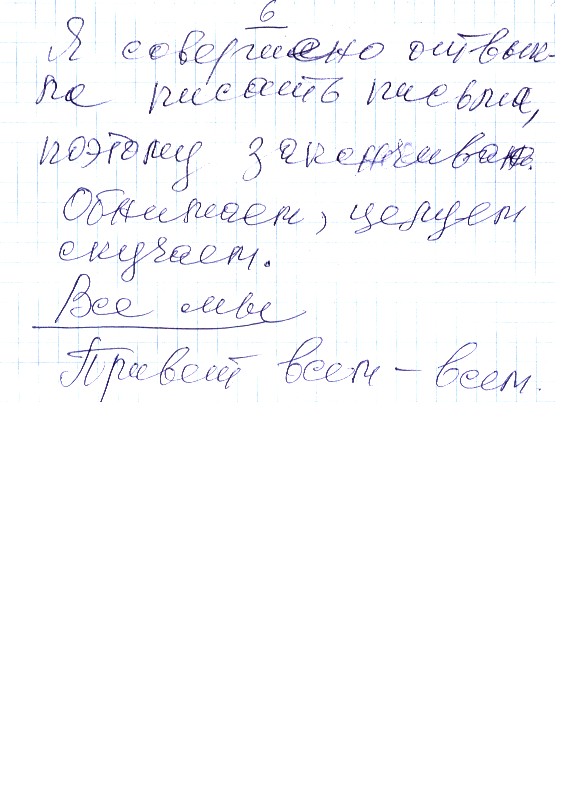 6
Я совершенно отвык-
ла писать письма,
поэтому заканчиваю.
Обнимаем, целуем
скучаем.
Все мы
Привет всем – всем.